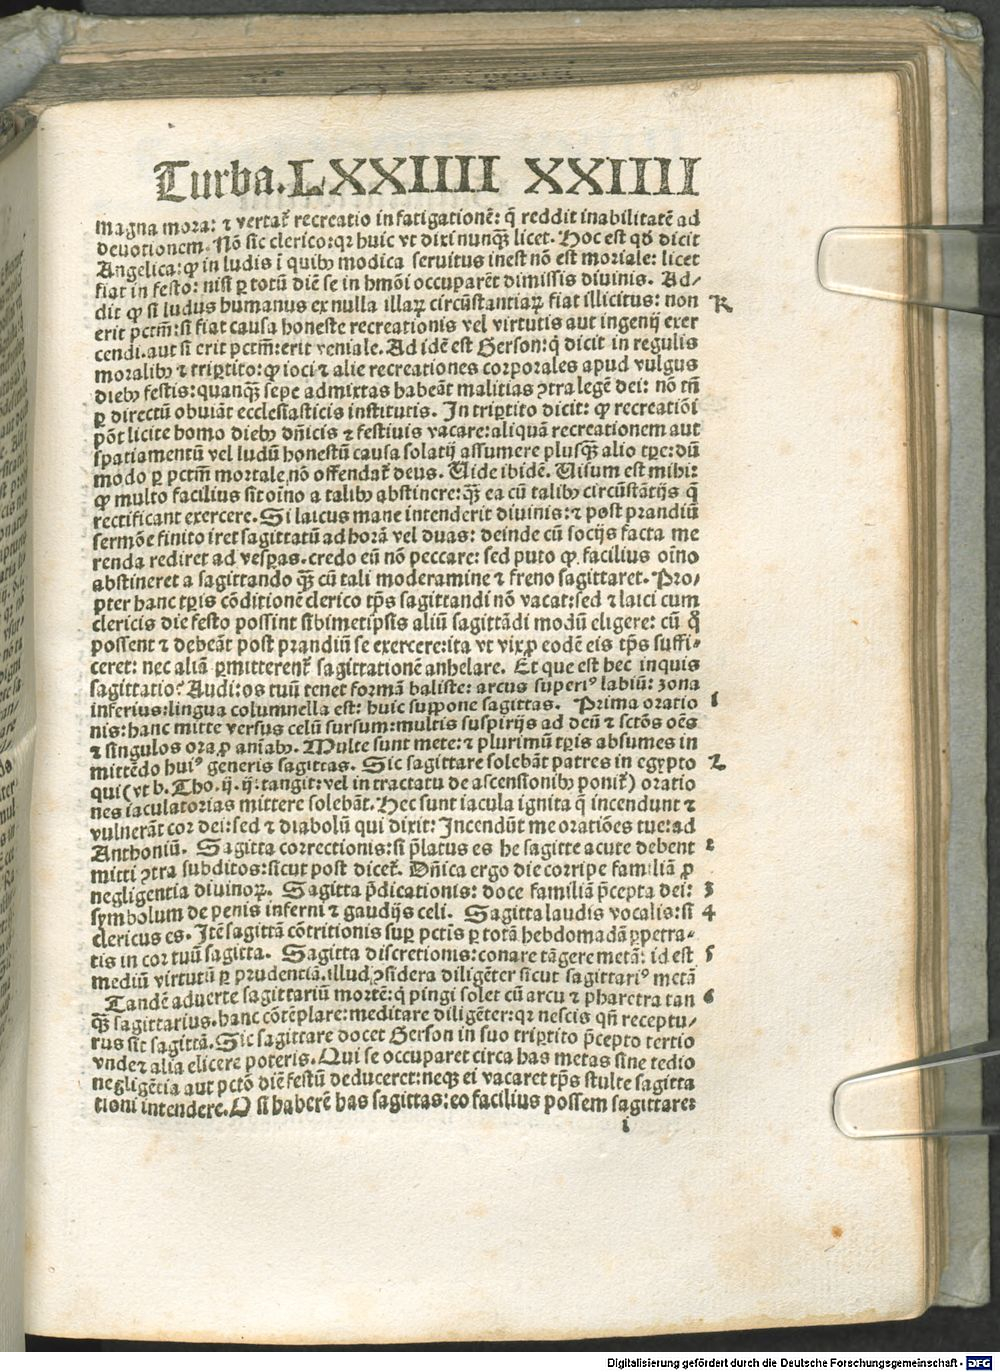 Turba. LXXIIII XXIIII
magna mora: ⁊ vertat᷑ recreatio in fatigationē: q̄ reddit inabilitatē ad
deuotionem. Nō sic clerico: qꝛ huic vt dixi nunqꝫ licet. Hoc est qđ dicit
Angelica: ꝙ in ludis ī quibꝰ modica seruitus inest nō est moriale: licet
fiat in festo: nisi ꝑ totū diē se in hmōi occuparēt dimissis diuinis. Ad/
dit ꝙ si ludus humanus ex nulla illaꝝ circūstantiaꝝ fiat illicitus: non R
erit pctm̄: si fiat causa honeste recreationis vel virtutis aut ingenij exer
cendi. aut si erit pctm̄: erit veniale. Ad idē est Gerson: q̄ dicit in regulis
moralibꝰ ⁊ triꝑtito: ꝙ ioci ⁊ alie recreationes corporales apud vulgus
diebꝰ festis: quanqꝫ sepe admixtas habeāt malitias ꝯtra legē dei: nō tn̄
ꝑ directū obuiāt ecclesiasticis institutis. In triꝑtito dicit: ꝙ recreatiōi
pōt licite homo diebꝰ dn̄icis ⁊ festiuis vacare: aliquā recreationem aut
spatiamentū vel ludū honestū causa solatij assumere plusqꝫ alio tꝑe: dū
modo ꝑ pctm̄ mortale nō offendat᷑ deus. Uide ibidē. Uisum est mihi:
ꝙ multo facilius sit oīno a talibꝰ abstinere: qꝫ ea cū talibꝰ circūstātijs q̄
rectificant exercere. Si laicus mane intenderit diuinis: ⁊ post prandiū
sermōe finito iret sagittatū ad horā vel duas: deinde cū socijs facta me
renda rediret ad vesꝑas. credo eū nō peccare: sed puto ꝙ facilius oīno
abstineret a sagittando qꝫ cū tali moderamine ⁊ freno sagittaret. Pro/
pter hanc tꝑis cōditionē clerico tp̄s sagittandi nō vacat: sed ⁊ laici cum
clericis die festo possint sibimetipsis aliū sagittādi modū eligere: cū q̊
possent ⁊ debeāt post prandiū se exercere: ita vt vix ꝓ eodē eis tp̄s suffi-
ceret: nec aliā ꝑmitterent᷑ sagittationē anhelare. Et que est hec inquis
sagittatio? Audi: os tuū tenet formā baliste: arcus superiꝰ labiū: zona
inferius: lingua columnella est: huic suppone sagittas. Prima oratio 1
nis: hanc mitte versus celū sursum: multis suspirijs ad deū ⁊ sctōs oēs
⁊ singulos ora ꝓ aniabꝰ. Multe sunt mete: ⁊ plurimū tꝑis absumes in
mittēdo huiꝰ generis sagittas. Sic sagittare solebāt patres in egypto 2
qui (vt b. Tho. ij. ij. tangit: vel in tractatu de ascensionibꝰ ponit᷑) oratio
nes iaculatorias mittere solebāt. Hec sunt iacula ignita q̄ incendunt ⁊
vulnerāt cor dei: sed ⁊ diabolū qui dixit: Incendūt me oratiōes tue: ad
Anthoniū. Sagitta correctionis: si p̄latus es he sagitte acute debent 2
mitti ꝯtra subditos: sicut post dicet᷑. Dn̄ica ergo die corripe familiā ꝓ
negligentia diuinoꝝ. Sagitta p̄dicationis: doce familiā p̄cepta dei: 3
symbolum de penis inferni ⁊ gaudijs celi. Sagitta laudis vocalis: si 4
clericus es. Itē sagittā cōtritionis suꝑ pctīs ꝑ totā hebdomadā ꝑpetra-
tis in cor tuū sagitta. Sagitta discretionis: conare tāgere metā: id est 5
mediū virtutū ꝑ prudentiā. illud ꝯsidera diligēter sicut sagittariꝰ metā
Tandē aduerte sagittariū mortē: q̄ pingi solet cū arcu ⁊ pharetra tan 6
qꝫ sagittarius. hanc cōtēplare: meditare diligēter: qꝛ nescis qn̄ receptu/
rus sit sagittā. Sic sagittare docet Gerson in suo triꝑtito p̄cepto tertio
vnde ⁊ alia elicere poteris. Qui se occuparet circa has metas sine tedio
negligētia aut pctō diē festū deduceret: neqꝫ ei vacaret tp̄s stulte sagitta
tioni intendere. O si haberē has sagittas: eo facilius possem sagittare:
i
Digitalisierung gefördert durch die Deutsche Forschungsgemeinschaft - DFG